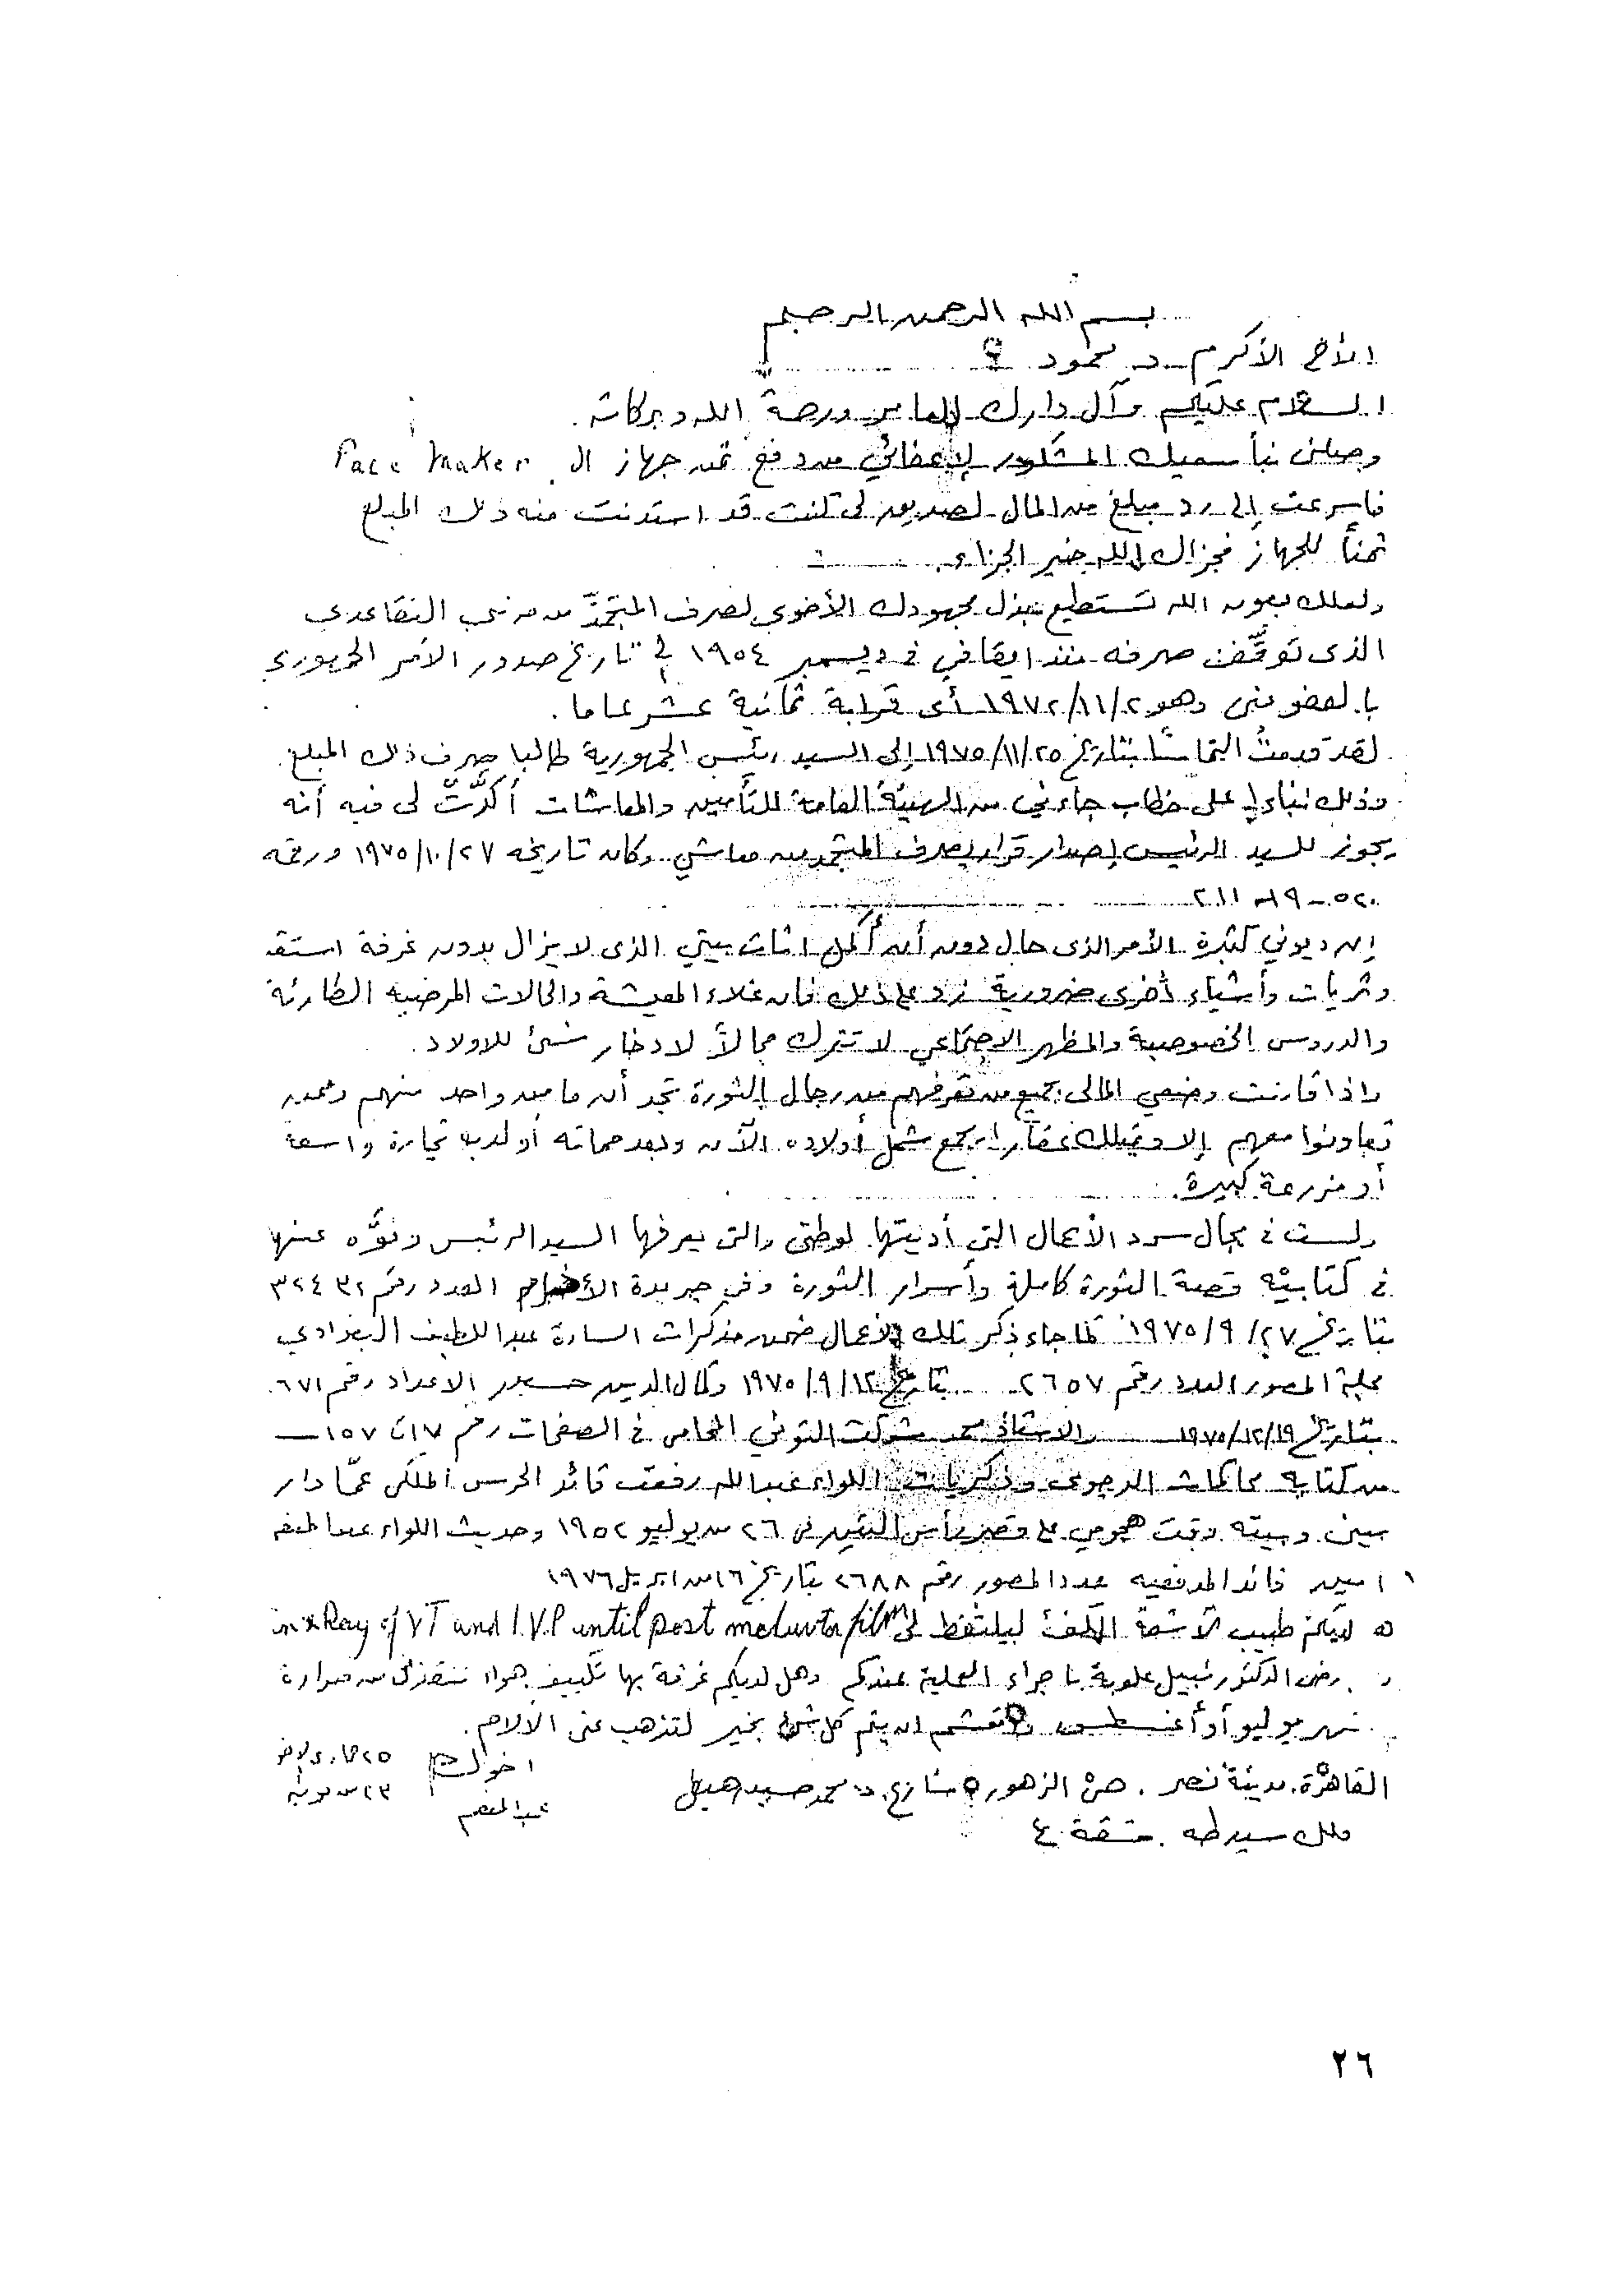 بسم الله الرحمن الرحيم
الأخ الأكرم د. محمود
السلام عليكم وآل دارك العامر ورحمة الله وبركاته.
وصلنى نبأ سعيك المشكور لإعفائي من دفع ثمن جهاز ال Pace Maker
فأسرعت إلى رد مبلغ من المال لصديق لى كنت قد استدنت منه ذلك المبلغ
ثمناً للجهاز فجزاك الله خير الجزاء.
ولعلك بعون الله تستطيع بذل مجهودك الأخوى لصرف المتجمد من مرتبى التقاعدي
الذى توقف صرفه منذ ايقافي فى ديسمبر ١٩٥٤ إلى تاريخ صدور الأمر الجمهوري
بالعفو عنى وهو ١٩٧٢/١١/٢ أى قرابة ثمانية عشر عاما.
لقد قدمتُ التماسًا بتاريخ ١٩٧٥/١١/٢٥ إلى السيد رئيس الجمهورية طالبا صرف ذلك المبلغ
وذلك بناءا على خطاب جاءني من الهيئة العامة للتأمين والمعاشات أكدّتّ لى فيه أنه
يجوز للسيد الرئيس إصدار قرار بصرف المتجمد من معاشي وكان تاريخه ١٩٧٥/١٠/٢٧ ورقمه
إن ديوني كثيرة الأمر الذى حال دون أن أكمل اثاث بيتي الذى لا يزال بدون غرفة استقبال
وثريات وأشياء أخرى ضرورية زد على ذلك فان غلاء المعيشة والحالات المرضيه الطارئة
والدروس الخصوصية والمظهر الاجتماعي لا تترك مجالاً لادخار شئ للاولاد.
واذا قارنت وضعي المالى بجميع من تعرفهم من رجال الثورة تجد أن ما من واحد منهم وممن
تعاونوا معهم إلا ويمتلك عقارا يجمع شمل أولاده الآن وبعد مماته أو لديه تجارة واسعة
أو مزرعة كبيرة.
ولست فى مجال سرد الأعمال التي أديتها لوطنى والتى يعرفها السيد الرئيس ونوَّه عنها
فى كتابيْه قصة الثورة كاملة وأسرار الثورة وفى جريدة العدد رقم ٣٢٤٣٢
بتاريخ ١٩٧٥/٩/٢٧ كما جاء ذكر تلك الأعمال ضمن مذكرات السادة عبد اللطيف البغدادي
مجلة المصور العدد رقم ٢٦٥٧ بتاريخ ١٩٧٥/٩/١٢ وكمال الدين حسين الاعداد رقم ٦٧١
بتاريخ ١٩٧٥/١٢/١٩ والاستاذ محمد شوكت التوني المحامى فى الصفحات رقم ١٧ الى ١٥٧
من كتابه محاكمات الدجوى وذكريات اللواء عبد الله رفعت قائد الحرس الملكى عمّا دار
بينى وبينه وقت هجومي على قصر رأس التين فى ٢٦ من يوليو ١٩٥٢ وحديث اللواء عبد المنعم
امين قائد المدفعيه عدد المصور رقم ٢٦٨٨ بتاريخ ١٦ من ابريل ١٩٧٦
لديكم طبيب الأشعة الكفء ليلتقط لى in x Ray of VT and I.V.P until post film
الدكتور نبيل علوبة باجراء العملية عندكم وهل لديكم غرفة بها تكييف هواء تنقذنى من حرارة
شهر يوليو أو أغسطس ان يتم كل شئ بخير لتذهب عنى الآلام.
اخوك
عبد المنعم
القاهرة. مدينة نصر. حى الزهور شارع د. محمد حسين هيكل
ملك سيد طه. شقة ٤
٢٦